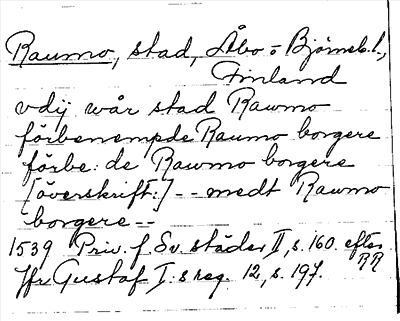 Raumo, stad, Åbo = Björneb. l.,
Finland
vdij wår stad Rawmo
förbenempde Raumo borgere
förbe: de Rawmo borgere
[överskrift:] -- medt Rawmo
borgere --
1539 Priv. f. Sv. städer II, s. 160. efter
RR
Jfr Gustaf I:s reg. 12, s. 197.